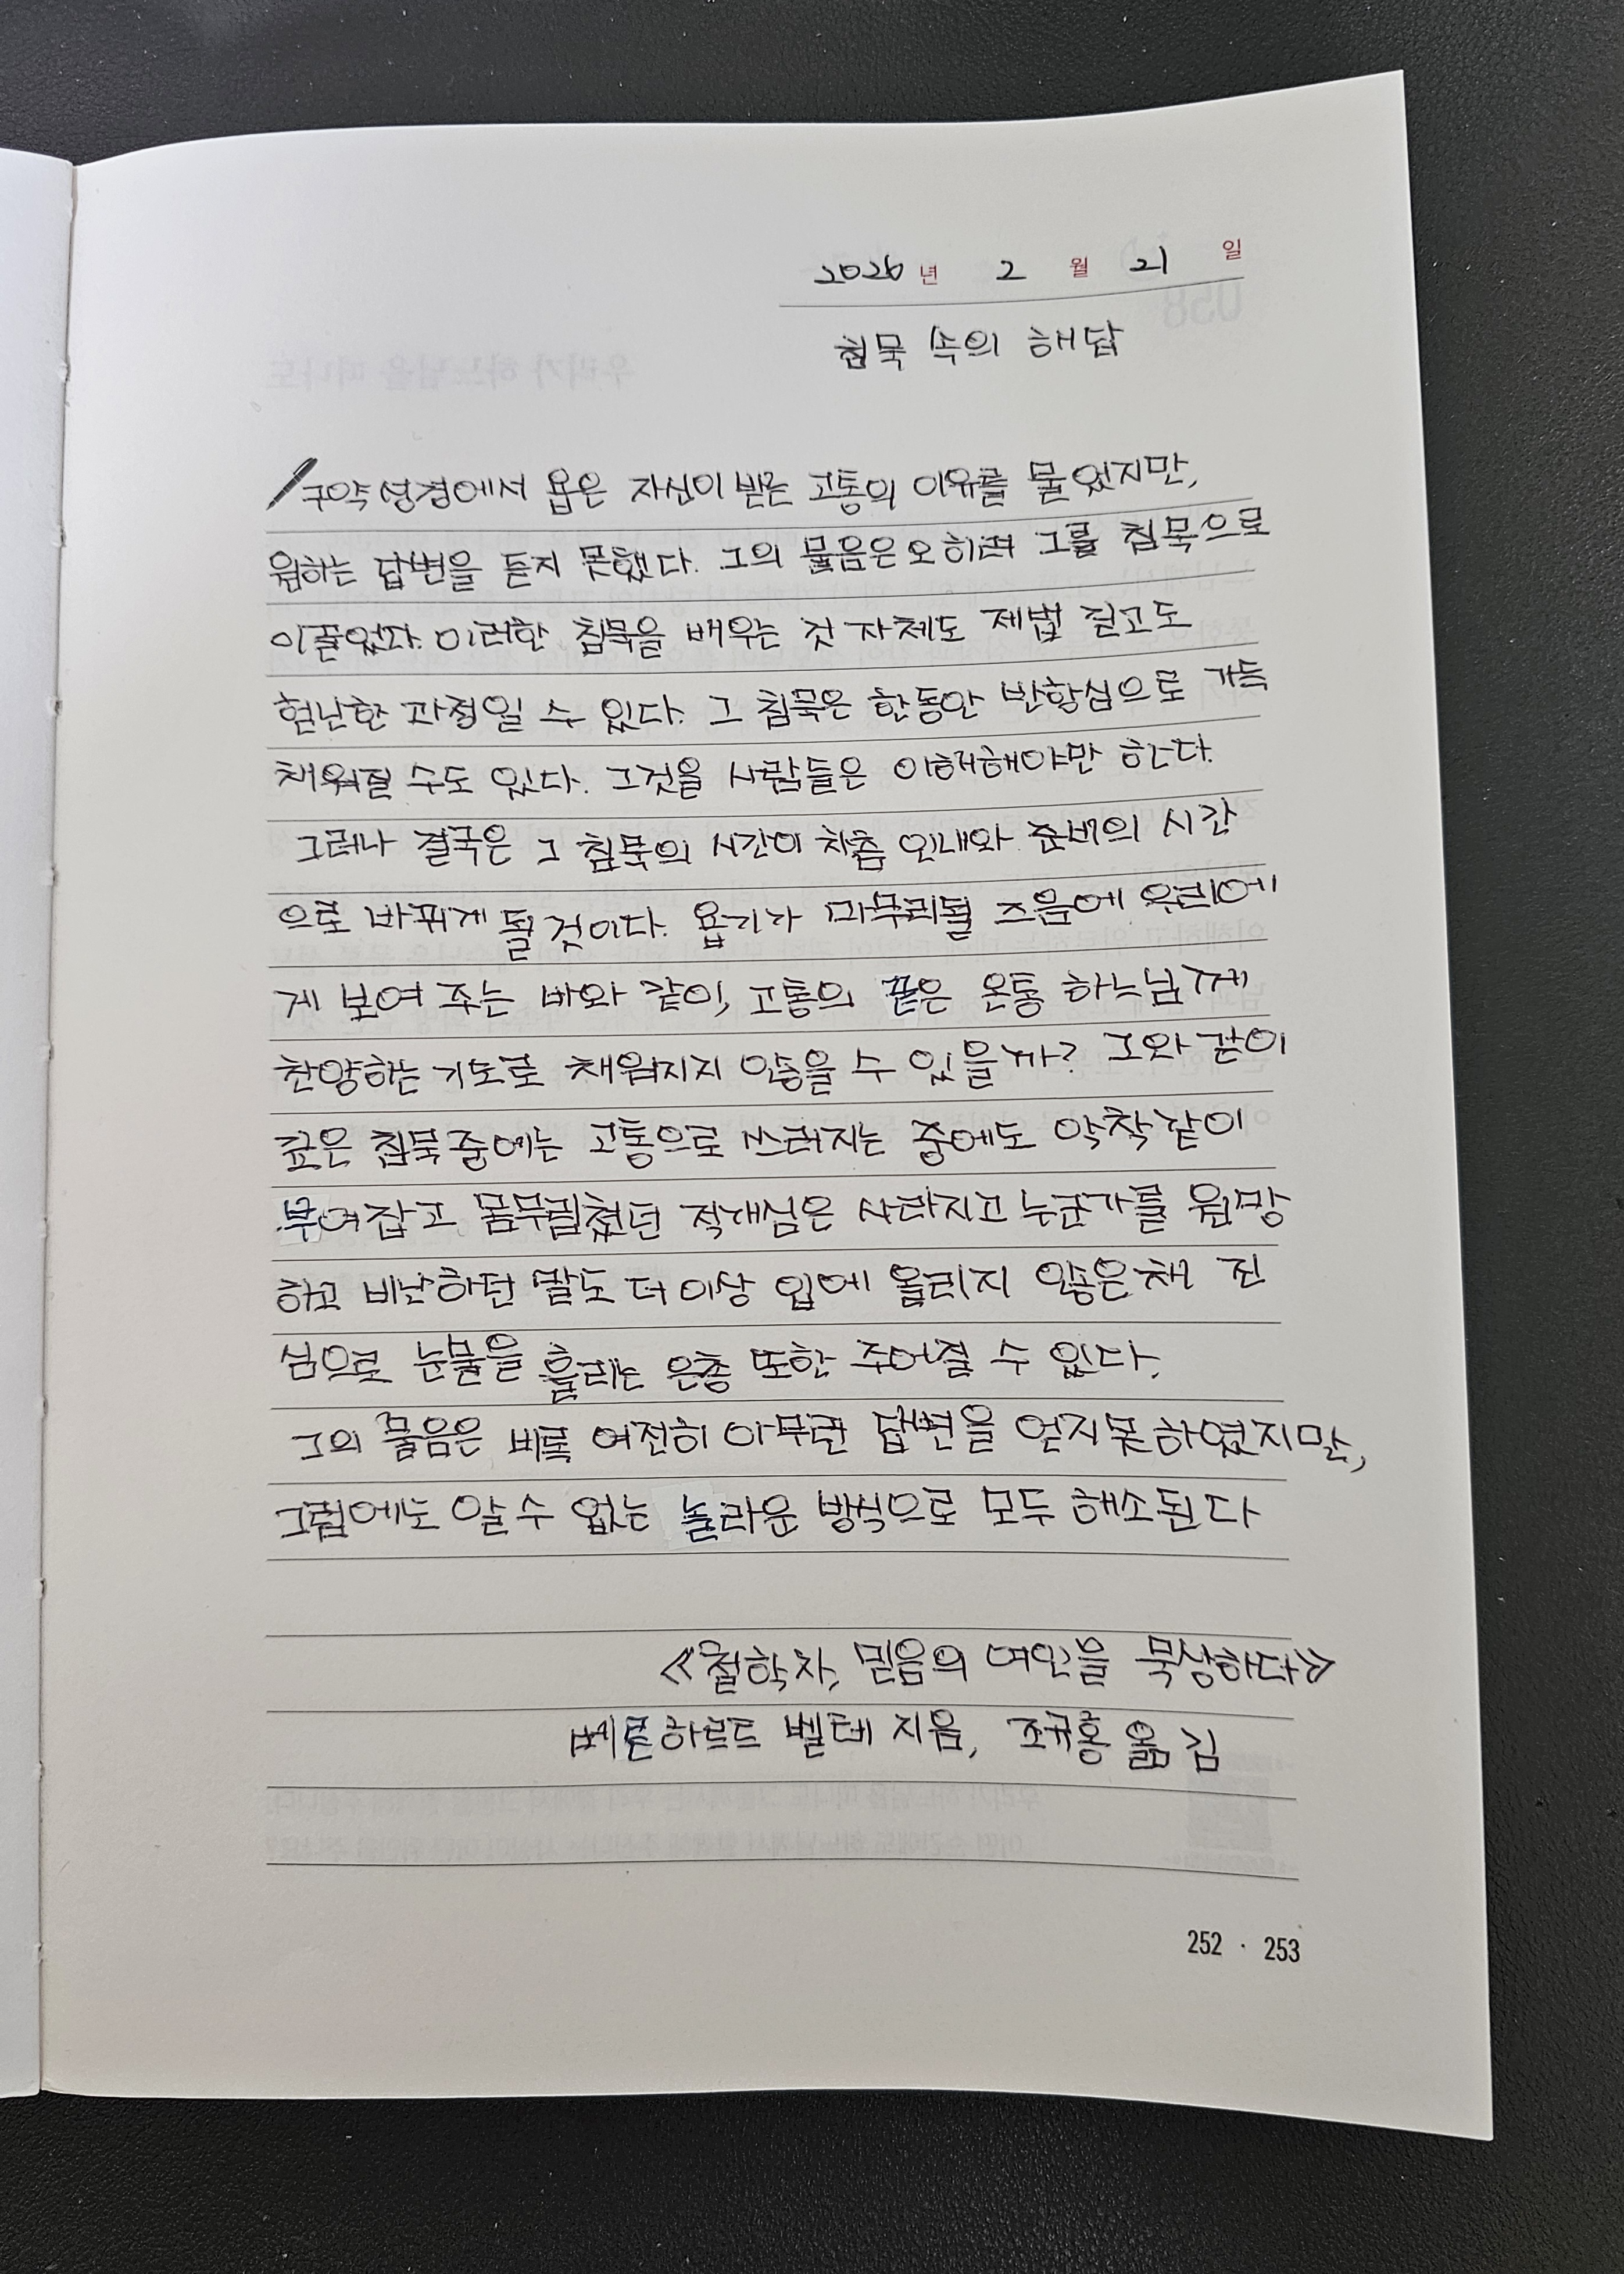 2026 년 2 월 21 일
침묵 속의 해답
구약성경에서 욥은 자신이 받은 고통의 이유를 물었지만,
원하는 답변을 듣지 못했다. 그의 물음은 오히려 그를 침묵으로
이끌었다. 이러한 침묵을 배우는 것 자체도 제법 길고도
험난한 과정일 수 있다. 그 침묵은 한동안 반항심으로 가득
채워질 수도 있다. 그것을 사람들은 이해해야만 한다.
그러나 결국은 그 침묵의 시간이 차츰 인내와 준비의 시간
으로 바뀌게 될 것이다. 욥기가 마무리될 즈음에 우리에
게 보여 주는 바와 같이, 고통의 끝은 온통 하느님께
찬양하는 기도로 채워지지 않을 수 있을까? 그와 같이
깊은 침묵 중에는 고통으로 쓰러지는 중에도 악착같이
부여잡고 몸부림쳤던 적개심은 사라지고 누군가를 원망
하고 비난하던 말도 더 이상 입에 올리지 않은 채 진
심으로 눈물을 흘리는 은총 또한 주어질 수 있다.
그의 물음은 비록 여전히 아무런 답변을 얻지 못하였지만,
그럼에도 알 수 없는 놀라운 방식으로 모두 해소된다
《철학자, 믿음의 여인을 묵상하다》
베른하르트 벨테 지음, 조규홍 옮김
252 · 253